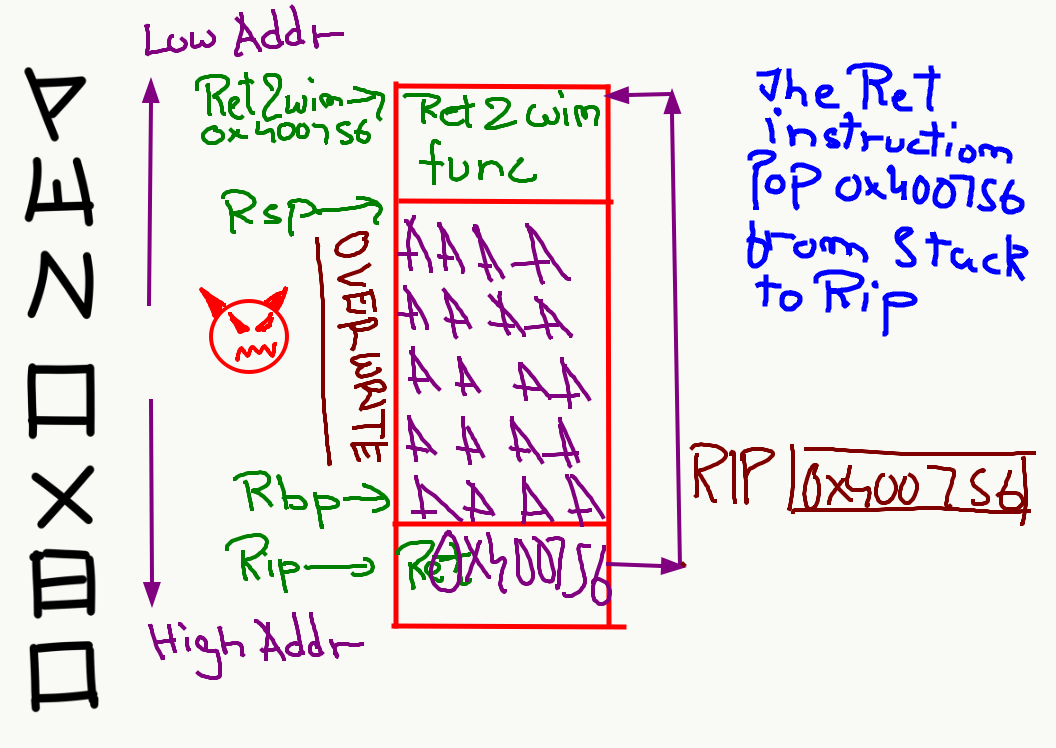 PEN0X80
Low Addr
Ret2win
0x400756
Ret2win
func
Rsp
OVERWRITE
A A A A
A A A A
A A A A
A A A A
A A A A
Rbp
Rip
Ret
0x400756
High Addr
The Ret
instruction
Pop 0x400756
from Stack
to Rip
RIP 0x400756